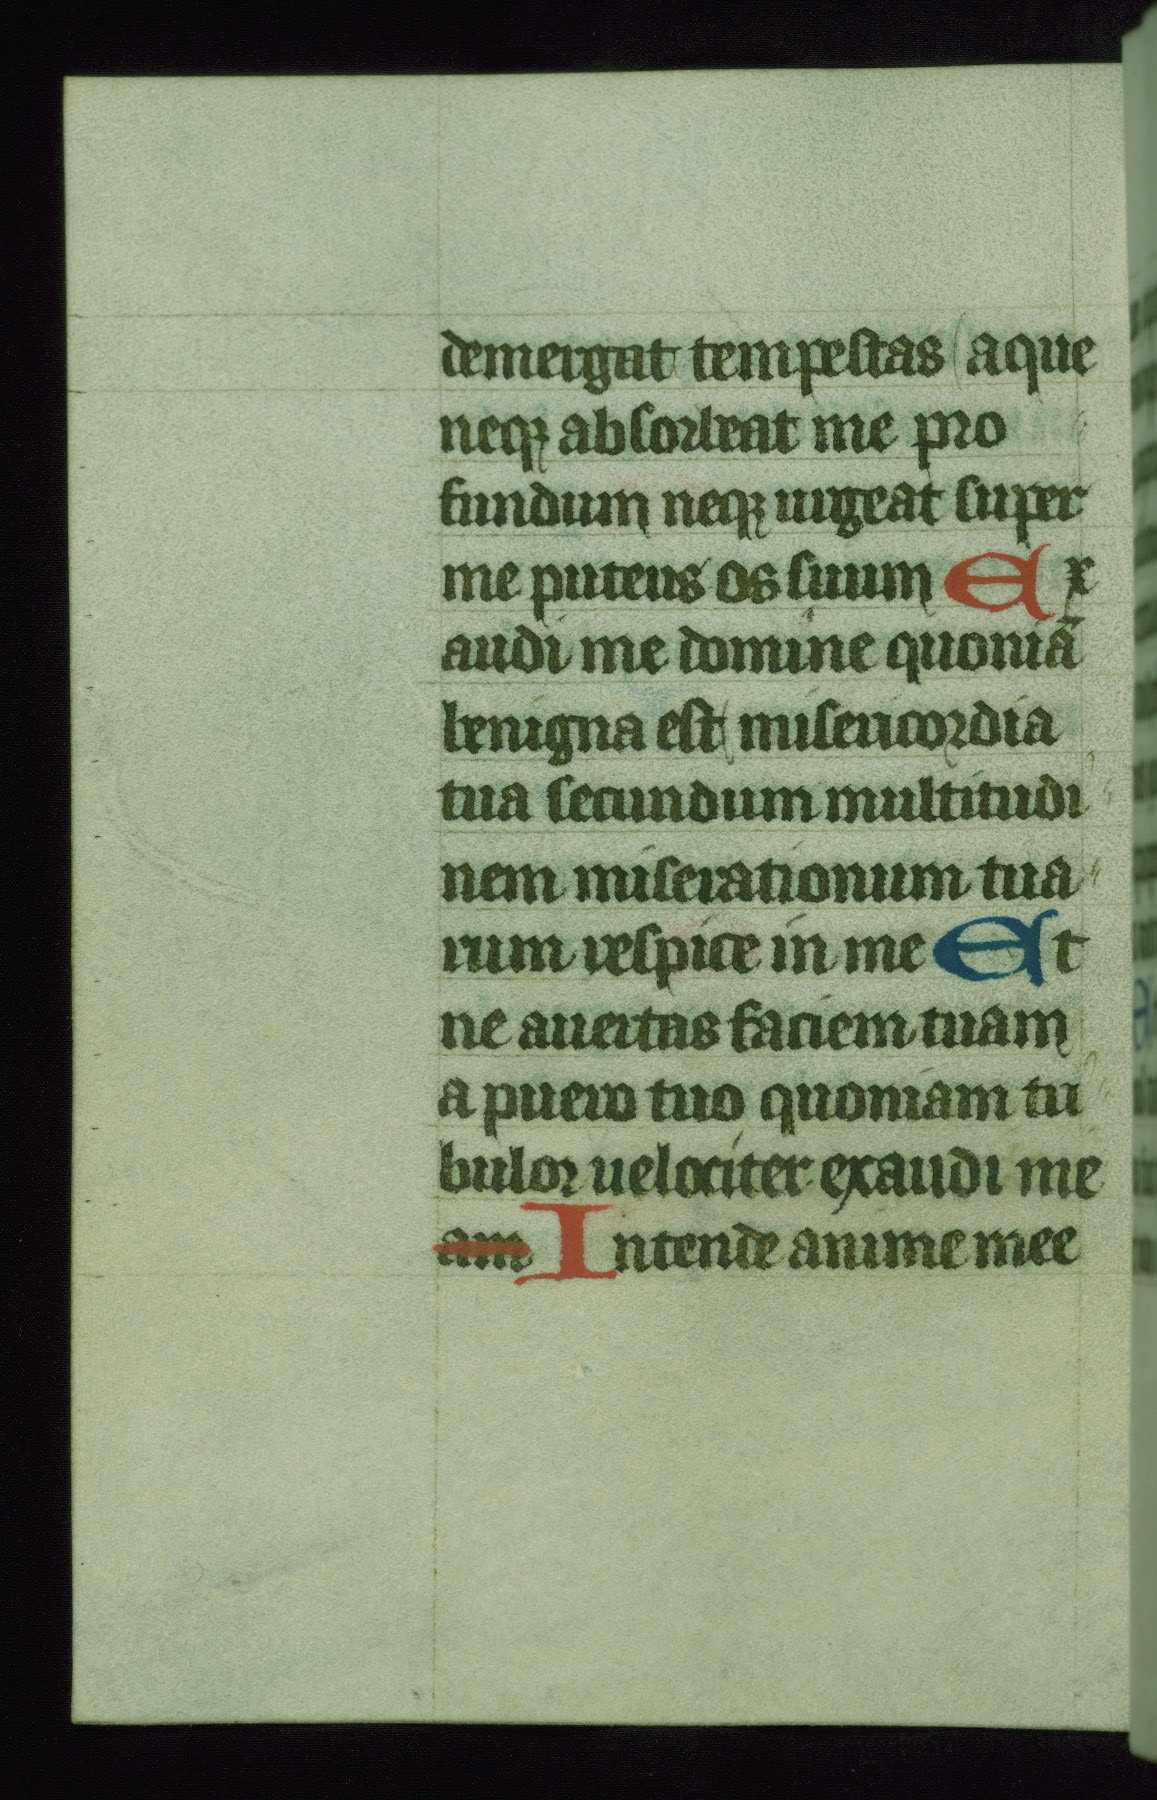 demergat tempestas aque
neqꝫ absorbeat me pro
fundum neqꝫ urgeat super
me puteus os suum Ex
audi me domine quoniā
benigna est misericordia
tua secundum multitudi
nem miserationum tua
rum respice in me Et
ne auertas faciem tuam
a puero tuo quoniam tri
bulor uelociter exaudi me
am Intende anime mee